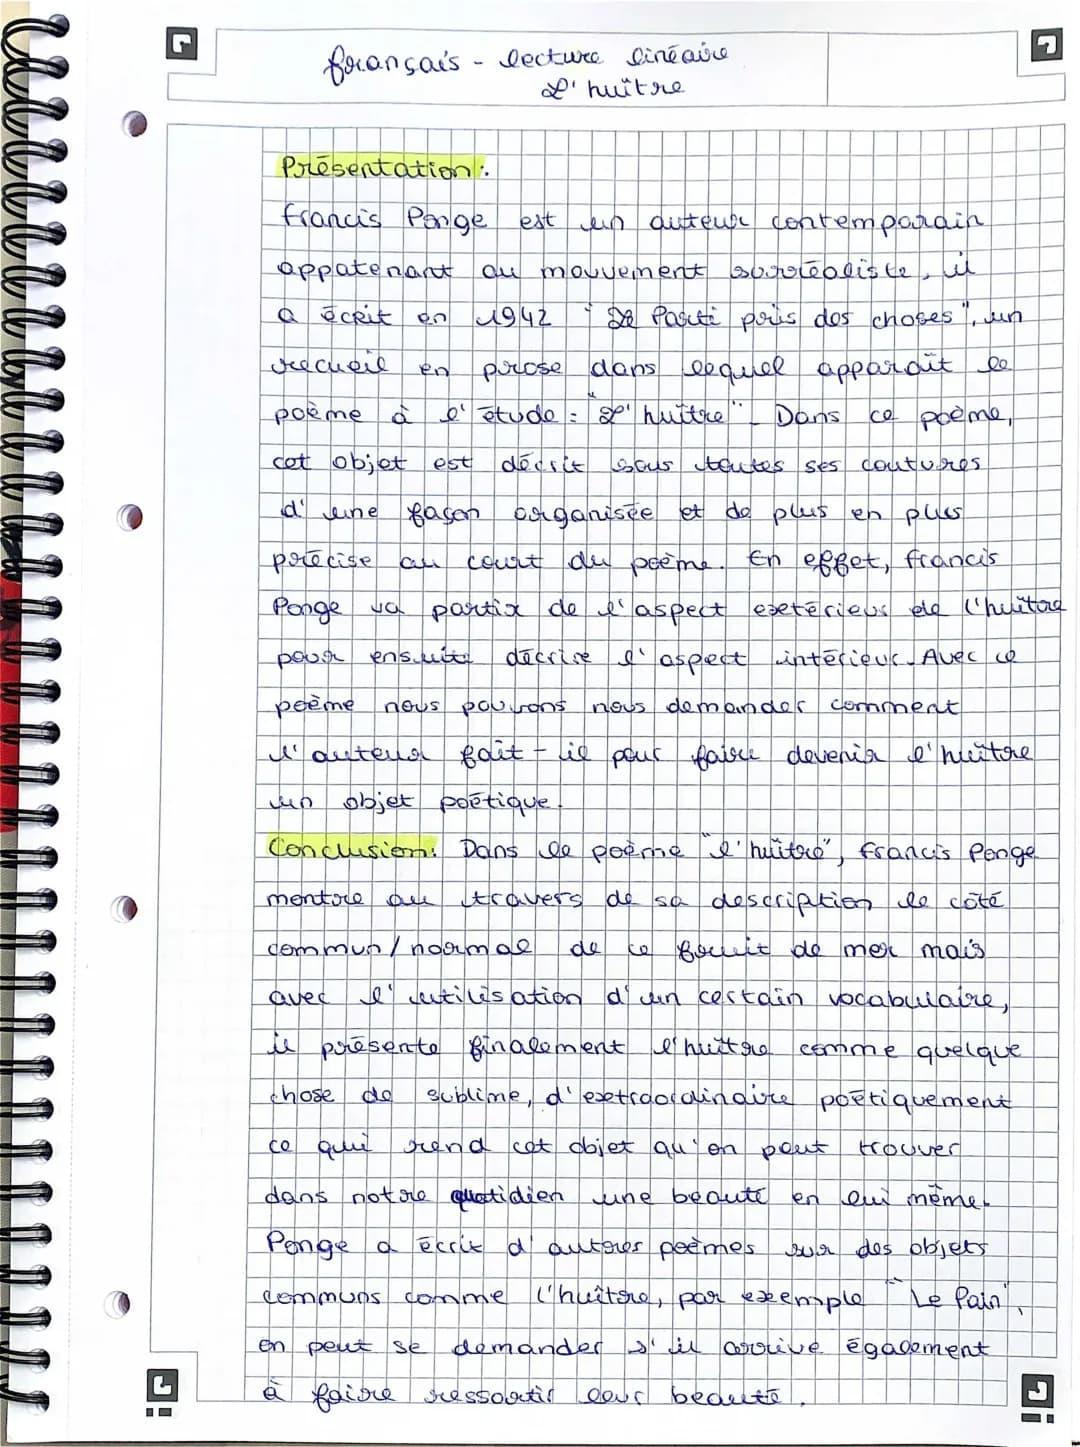 français - lecture linéaire
L'huître
Présentation :
francis Ponge est un auteur contemporain
appatenant au mouvement surréaliste, il
a écrit en 1942 "Le Parti pris des choses", un
recueil en prose dans lequel apparaît le
poème à l'étude : "L'huître". Dans ce poème,
cet objet est décrit sous toutes ses coutures
d'une façon organisée et de plus en plus
précise au court du poème. En effet, francis
Ponge va partir de l'aspect extérieur de l'huître
pour ensuite décrire l'aspect intérieur. Avec ce
poème nous pouvons nous demander comment
l'auteur fait-il pour faire devenir l'huître
un objet poétique.
Conclusion: Dans le poème "l'huître", francis Ponge
montre au travers de sa description le côté
commun/normal de ce fruit de mer mais
avec l'utilisation d'un certain vocabulaire,
il présente finalement l'huître comme quelque
chose de sublime, d'extraordinaire poétiquement
ce qui rend cet objet qu'on peut trouver
dans notre quotidien une beauté en lui même.
Ponge a écrit d'autres poèmes sur des objets
communs comme l'huître, par exemple "Le Pain",
on peut se demander s'il arrive également
à faire ressortir leur beauté.